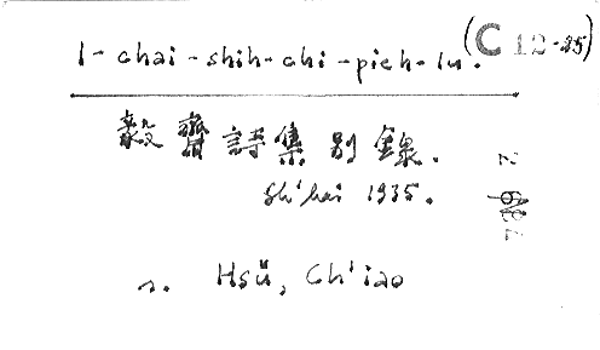 I-chai-shih-chi-pieh-lu. (C 12-35)
毅齋詩集別錄.
Sh'hai 1935.
s. Hsü, Ch'iao